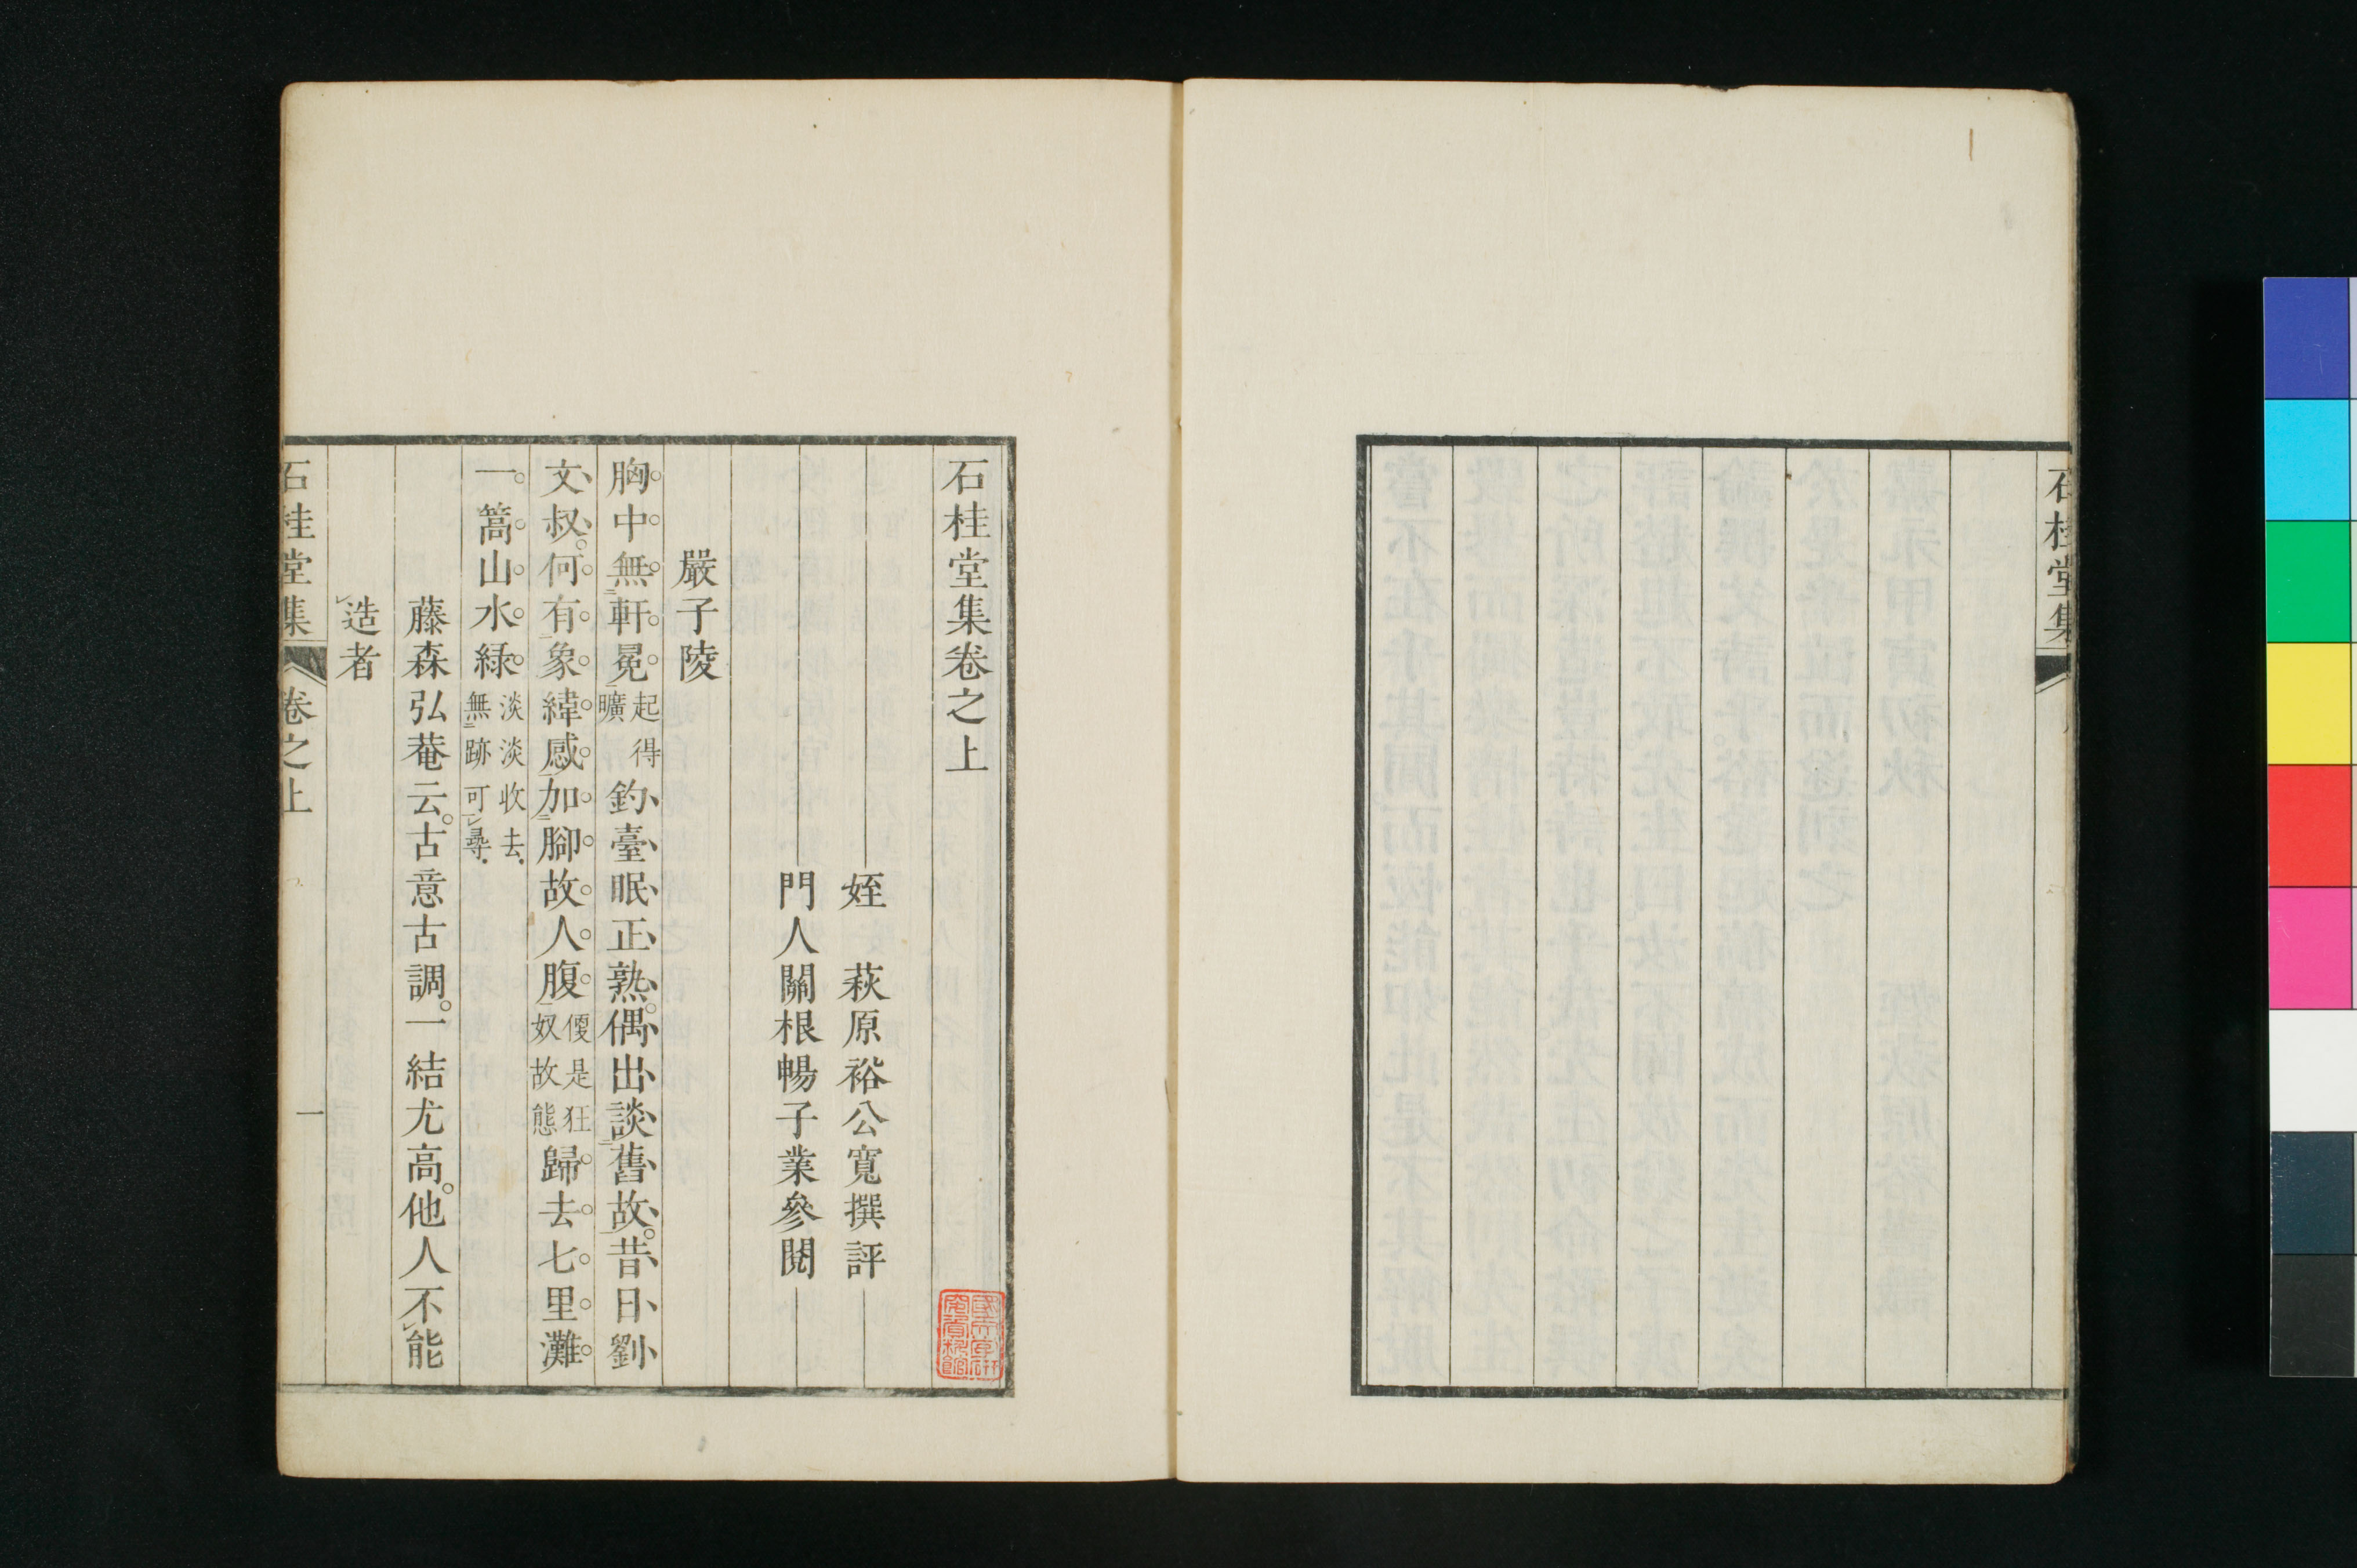 石桂堂集
石桂堂集卷之上
姪　萩原裕公寬撰評
門人關根暢子業參閱
嚴子陵
胸中無軒冕起得曠釣臺眠正熟偶出談舊故昔日劉
文叔何有象緯感加腳故人腹便是狂奴故態歸去七里灘
一篙山水綠淡淡收去無跡可尋
藤森弘菴云古意古調一結尤高他人不能
造者
石桂堂集　卷之上　一